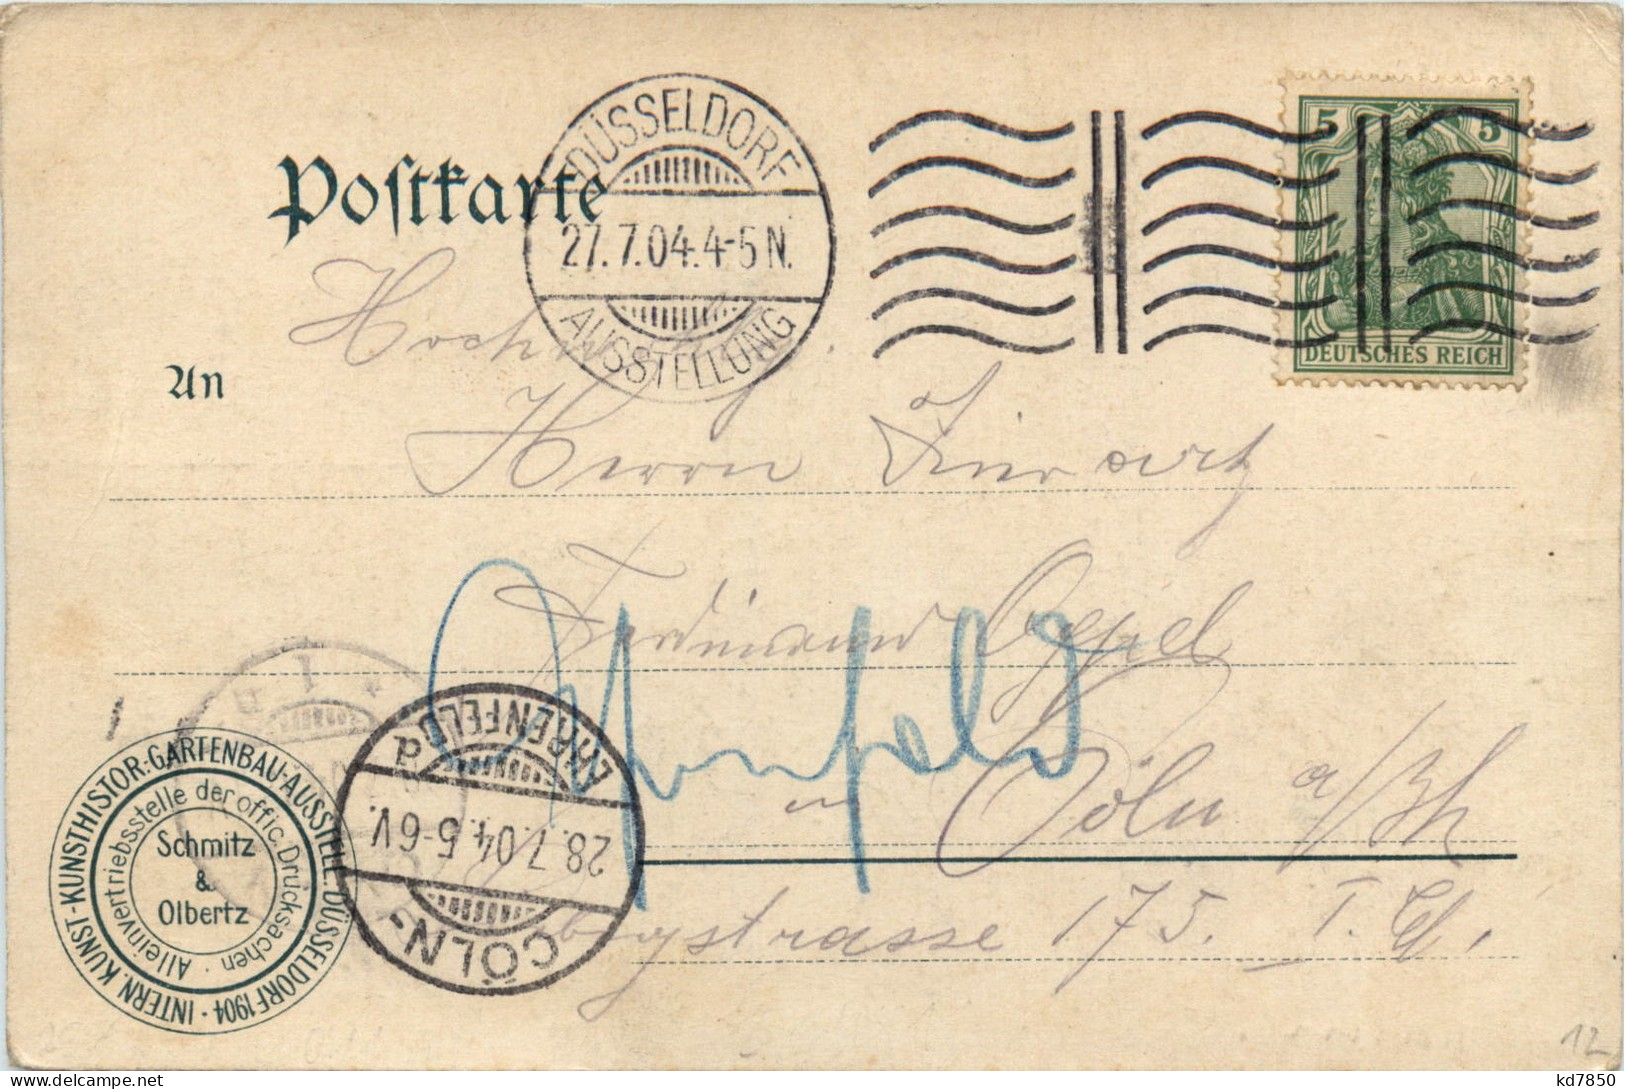 Postkarte
DÜSSELDORF
27.7.04.4-5N.
AUSSTELLUNG
5 5
DEUTSCHES REICH
An
Herrn
Ferdinand
Ehrenfeld
Cöln a/Rh
strasse 175. I. Etg.
CÖLN-
28.7.04.5-6V.
EHRENFELD
d
INTERN. KUNST-KUNSTHISTOR.-GARTENBAU-AUSSTELL. DÜSSELDORF 1904 ·
Alleinvertriebsstelle der offic. Drucksachen ·
Schmitz
&
Olbertz
12
kd7850